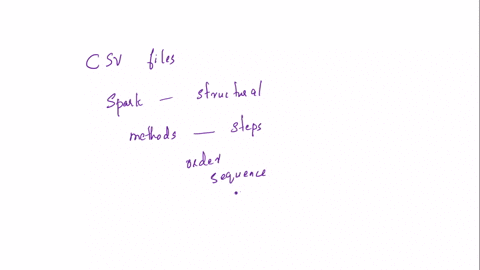 CSV files
Spark — structural
methods — steps
order
sequence